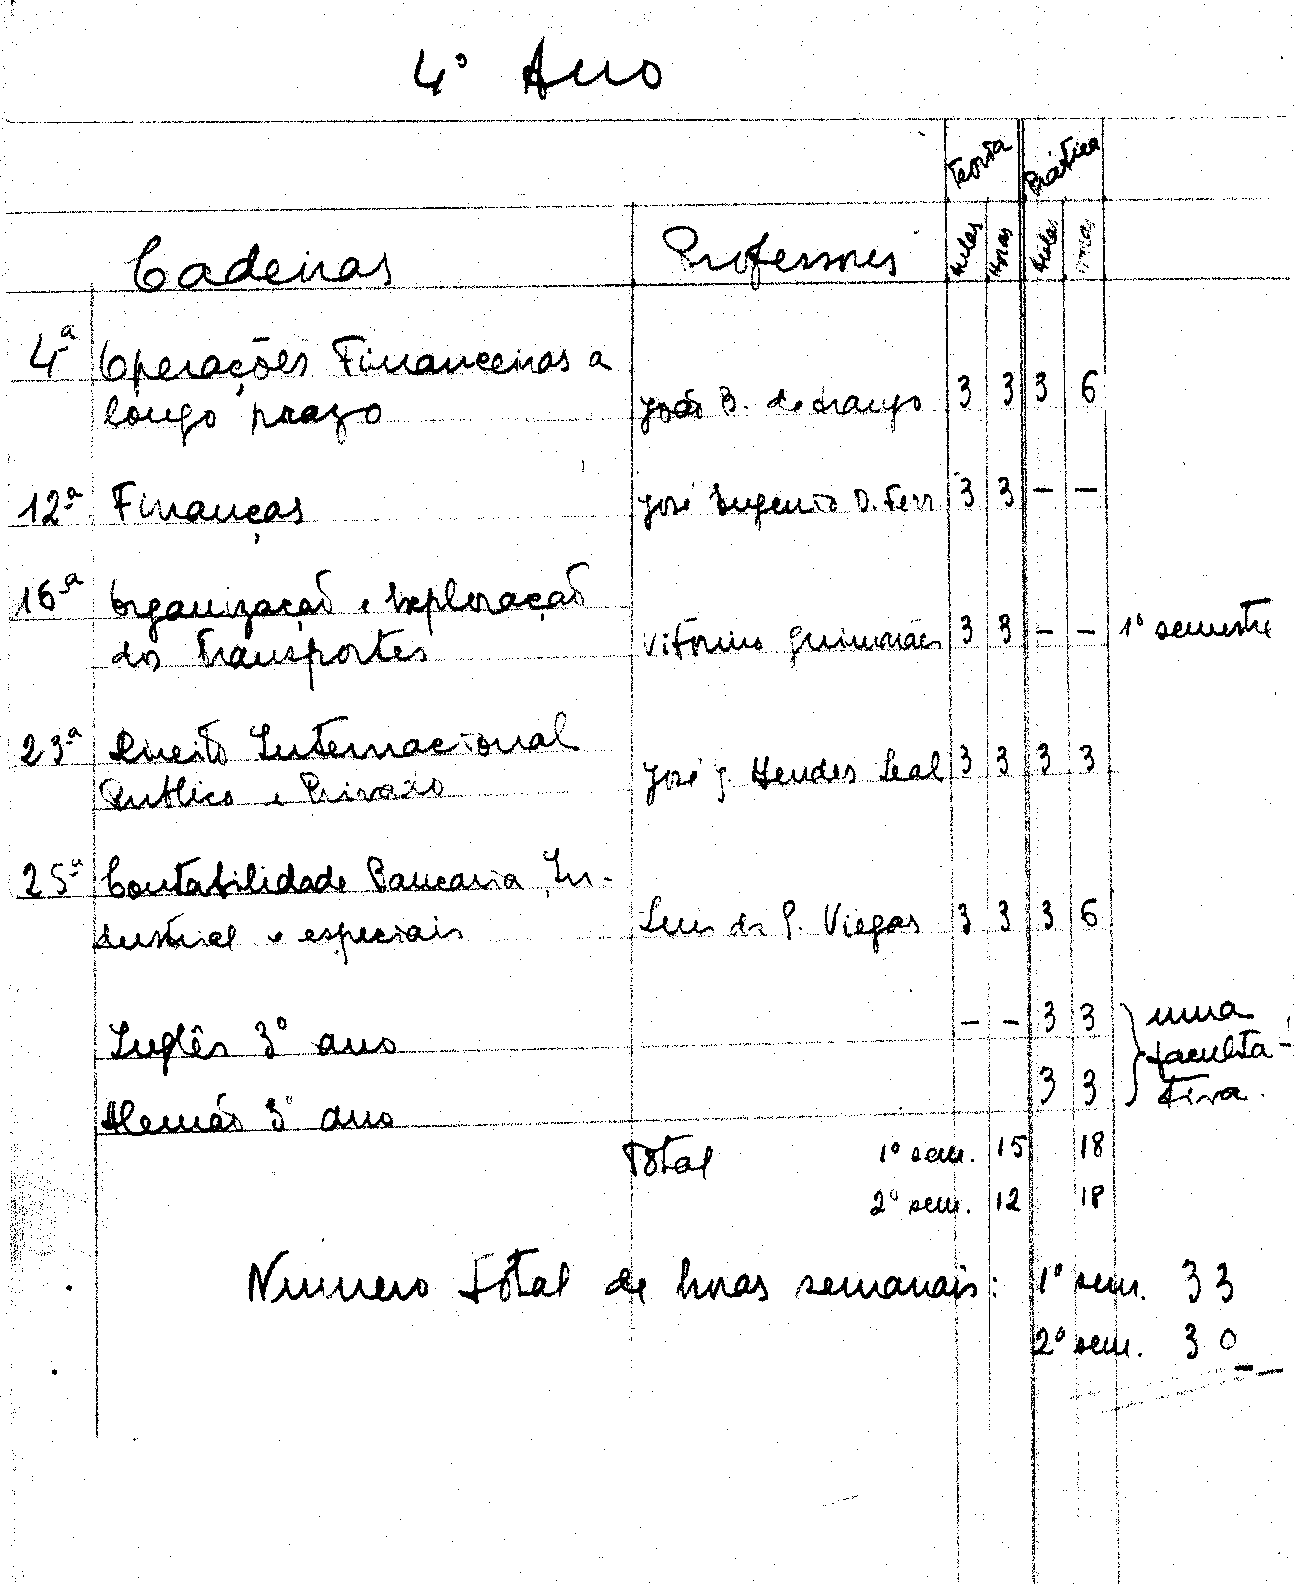 4º Ano
Teoria Prática
Cadeiras Professores Aulas Horas Aulas Horas
4ª Operações Financeiras a
longo prazo João B. de Araujo 3 3 3 6
12ª Finanças José Eugenio D. Ferr 3 3 - -
16ª Organização e Exploração
dos Transportes Vitorino Guimarães 3 3 - - 1º semestre
23ª Direito Internacional
Publico e Privado José J. Mendes Leal 3 3 3 3
25ª Contabilidade Bancaria, In-
dustrial e especiais Luis da P. Viegas 3 3 3 6
Inglês 3º ano - - 3 3 uma
faculta-
Alemão 3º ano 3 3 tiva.
Total 1º sem. 15 18
2º sem. 12 18
Numero total de horas semanais: 1º sem. 33
2º sem. 30